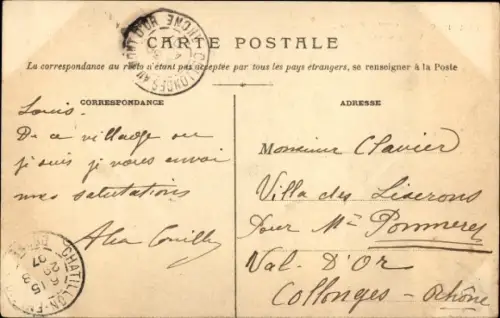 CARTE POSTALE
La correspondance au recto n'étant pas acceptée par tous les pays étrangers, se renseigner à la Poste
CORRESPONDANCE
Louis.
De ce villadge ou
je suis je vous envoi
mes salutations
ADRESSE
Monsieur Clavier
Villa des Liserons
Pour Mr Pommerey
Val. D'Or
Collonges - Rhône
COLLONGES AU MONT D'OR RHONE
CHATILLON
15